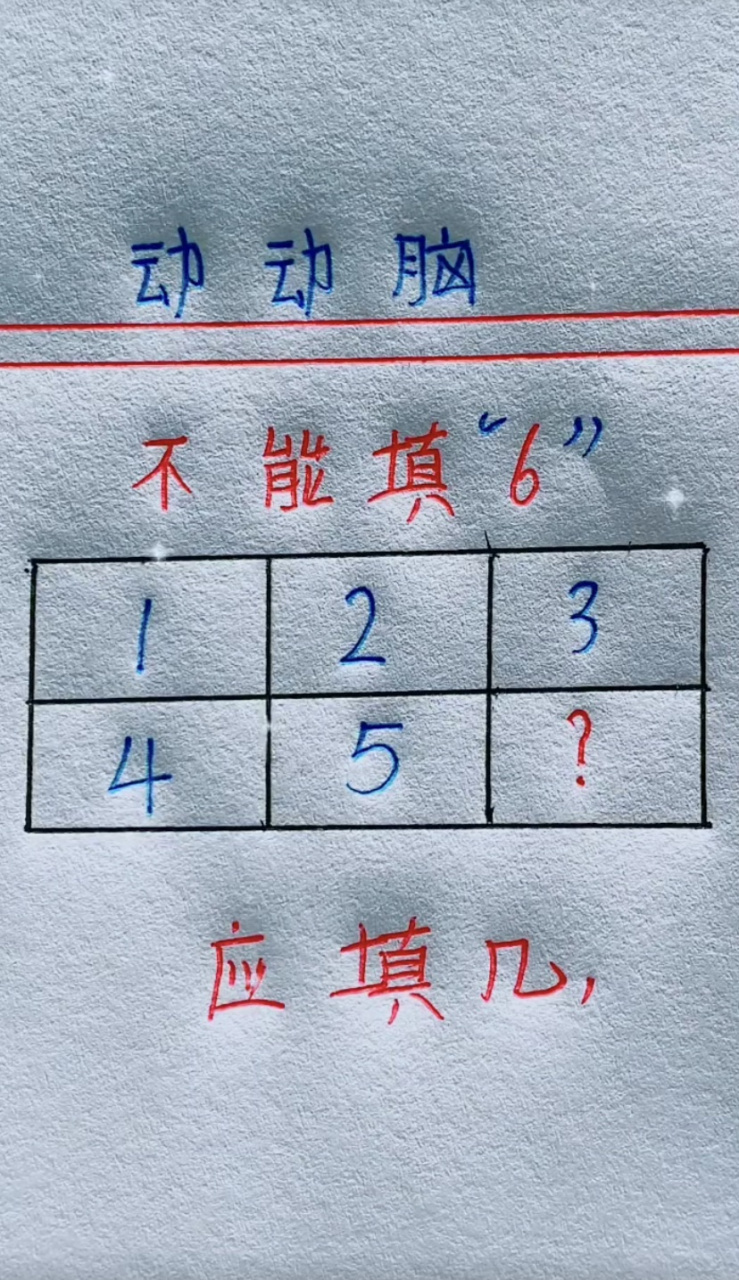 动动脑
不能填“6”
1 2 3
4 5 ?
应填几,